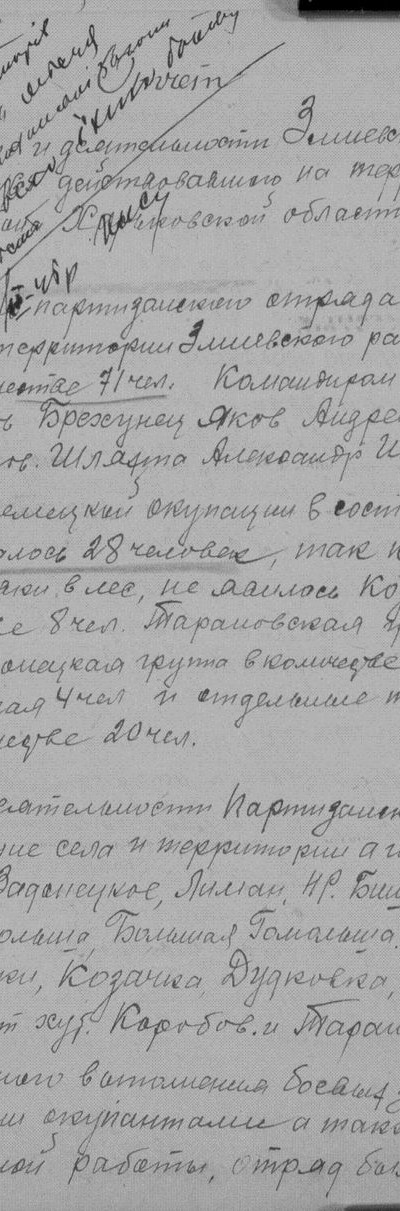 Отчет
и деятельности Змиевс
действовавшего на тер
Харьковской област
партизанского отряда
территории Змиевского ра
честве 71 чел. Командиром
ь Брехунец Яков Андре
ов. Шляхта Александр И
емецкой окупации в сост
алось 28 человек, так к
яки в лес, не явилось Ко
се 8 чел. Тарановская гр
онецкая группа в количестве
кая 4 чел и отдельные
честве 20 чел.
еятельности Партизанск
щие села и территории
Задонецкое, Лиман, Нр. Биш
ольша, Большая Гомольша,
ки, Козачка, Дудковка,
т хут. Коробов. и Таран
ного выполнения боевых
ми окупантами а такж
ной работы, отряд бы